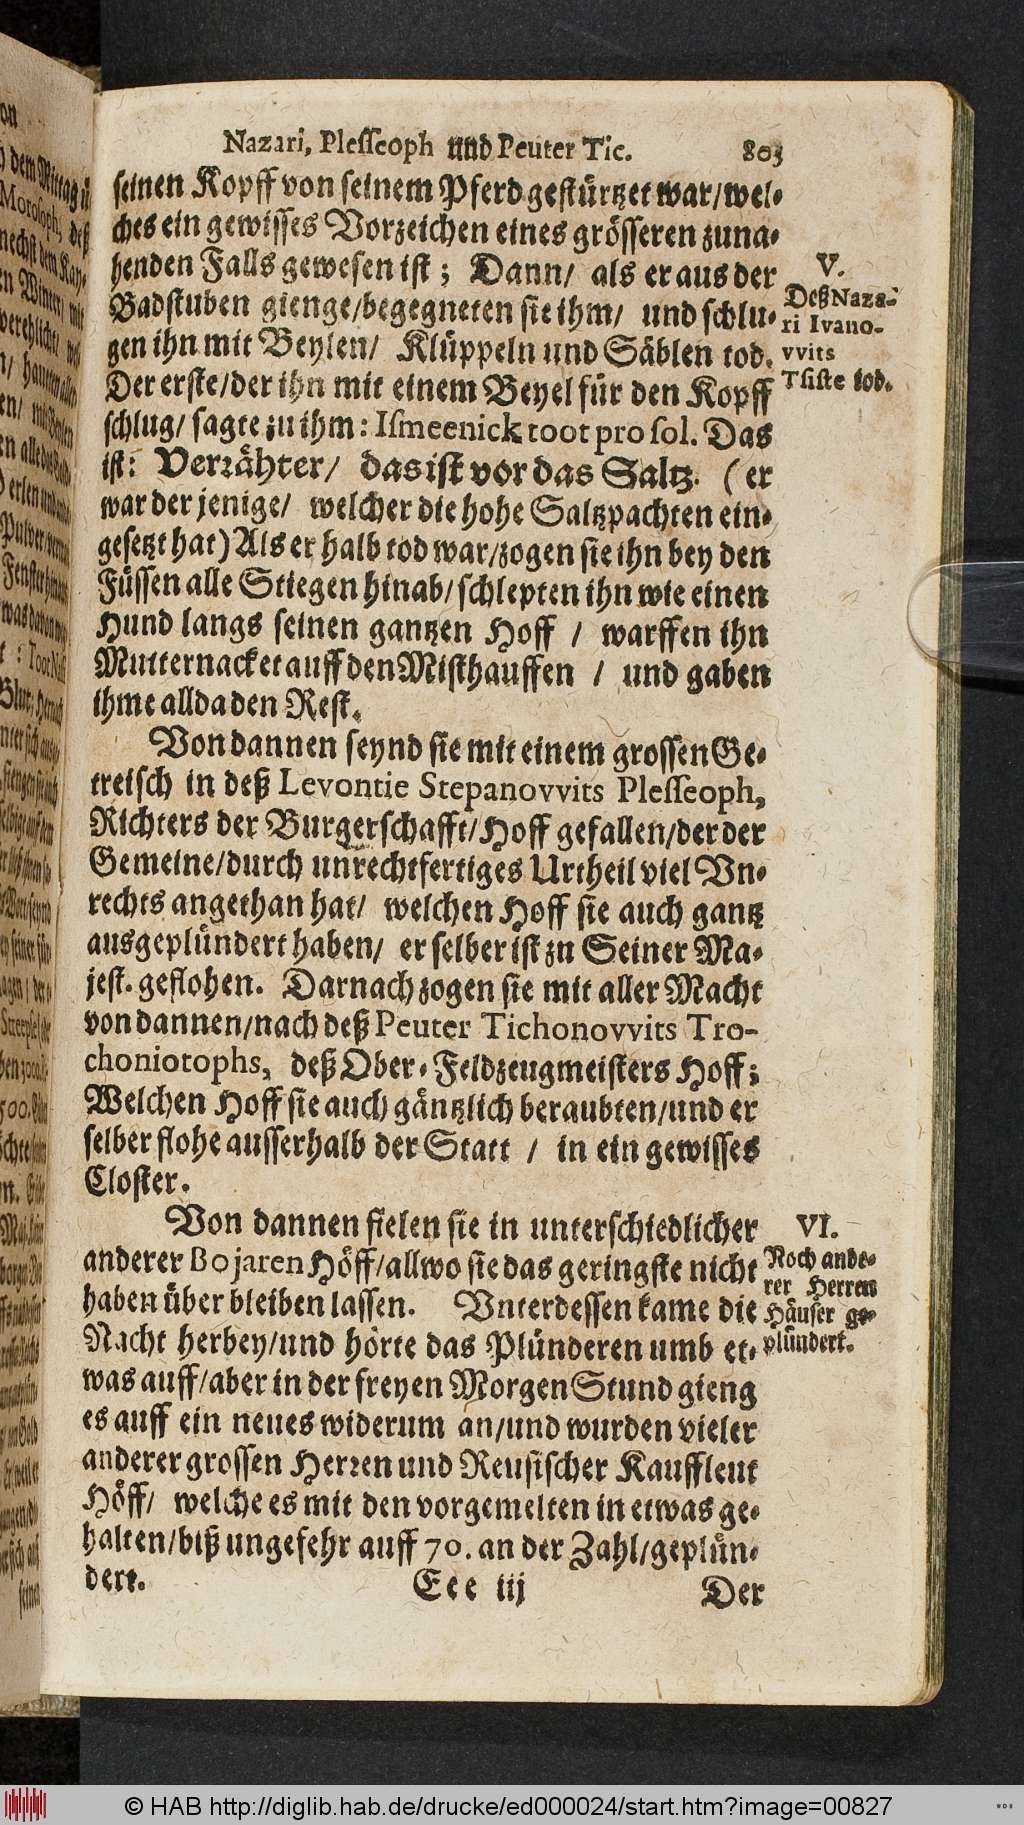 Nazari, Plesseoph und Peuter Tic. 803
seinen Kopff von seinem Pferd gestürtzet war/wel-
ches ein gewisses Vorzeichen eines grösseren zuna-
henden Falls gewesen ist; Dann/ als er aus der
Badstuben gienge/begegneten sie ihm/ und schlu-
gen ihn mit Beylen/ Klüppeln und Säblen tod.
Der erste/der ihn mit einem Beyel für den Kopff
schlug/ sagte zu ihm: Ismeenick toot pro sol. Das
ist: Verrähter/ das ist vor das Saltz. (er
war der jenige/ welcher die hohe Saltzpachten ein-
gesetzt hat) Als er halb tod war/zogen sie ihn bey den
Füssen alle Stiegen hinab/schlepten ihn wie einen
Hund langs seinen gantzen Hoff / warffen ihn
Mutternacket auff den Misthauffen / und gaben
ihme allda den Rest.
V.
Deß Naza-
ri Ivano-
vvits
Tsiste tod.
Von dannen seynd sie mit einem grossen Ge-
treisch in deß Levontie Stepanovvits Plesseoph,
Richters der Burgerschafft/Hoff gefallen/der der
Gemeine/durch unrechtfertiges Urtheil viel Vn-
rechts angethan hat/ welchen Hoff sie auch gantz
ausgeplündert haben/ er selber ist zu Seiner Ma-
jest. geflohen. Darnach zogen sie mit aller Macht
von dannen/nach deß Peuter Tichonovvits Tro-
choniotophs, deß Ober-Feldzeugmeisters Hoff;
Welchen Hoff sie auch gäntzlich beraubten/und er
selber flohe ausserhalb der Statt / in ein gewisses
Closter.
Von dannen fielen sie in unterschiedlicher
anderer Bojaren Höff/allwo sie das geringste nicht
haben über bleiben lassen. Vnterdessen kame die
Nacht herbey/und hörte das Plünderen umb et-
was auff/aber in der freyen Morgen Stund gieng
es auff ein neues widerum an/und wurden vieler
anderer grossen Herren und Reusischer Kauffleut
Höff/ welche es mit den vorgemelten in etwas ge-
halten/biß ungefehr auff 70. an der Zahl/geplün-
dert.
VI.
Noch ande-
rer Herren
Häuser ge-
plündert.
Eee iij Der
© HAB http://diglib.hab.de/drucke/ed000024/start.htm?image=00827